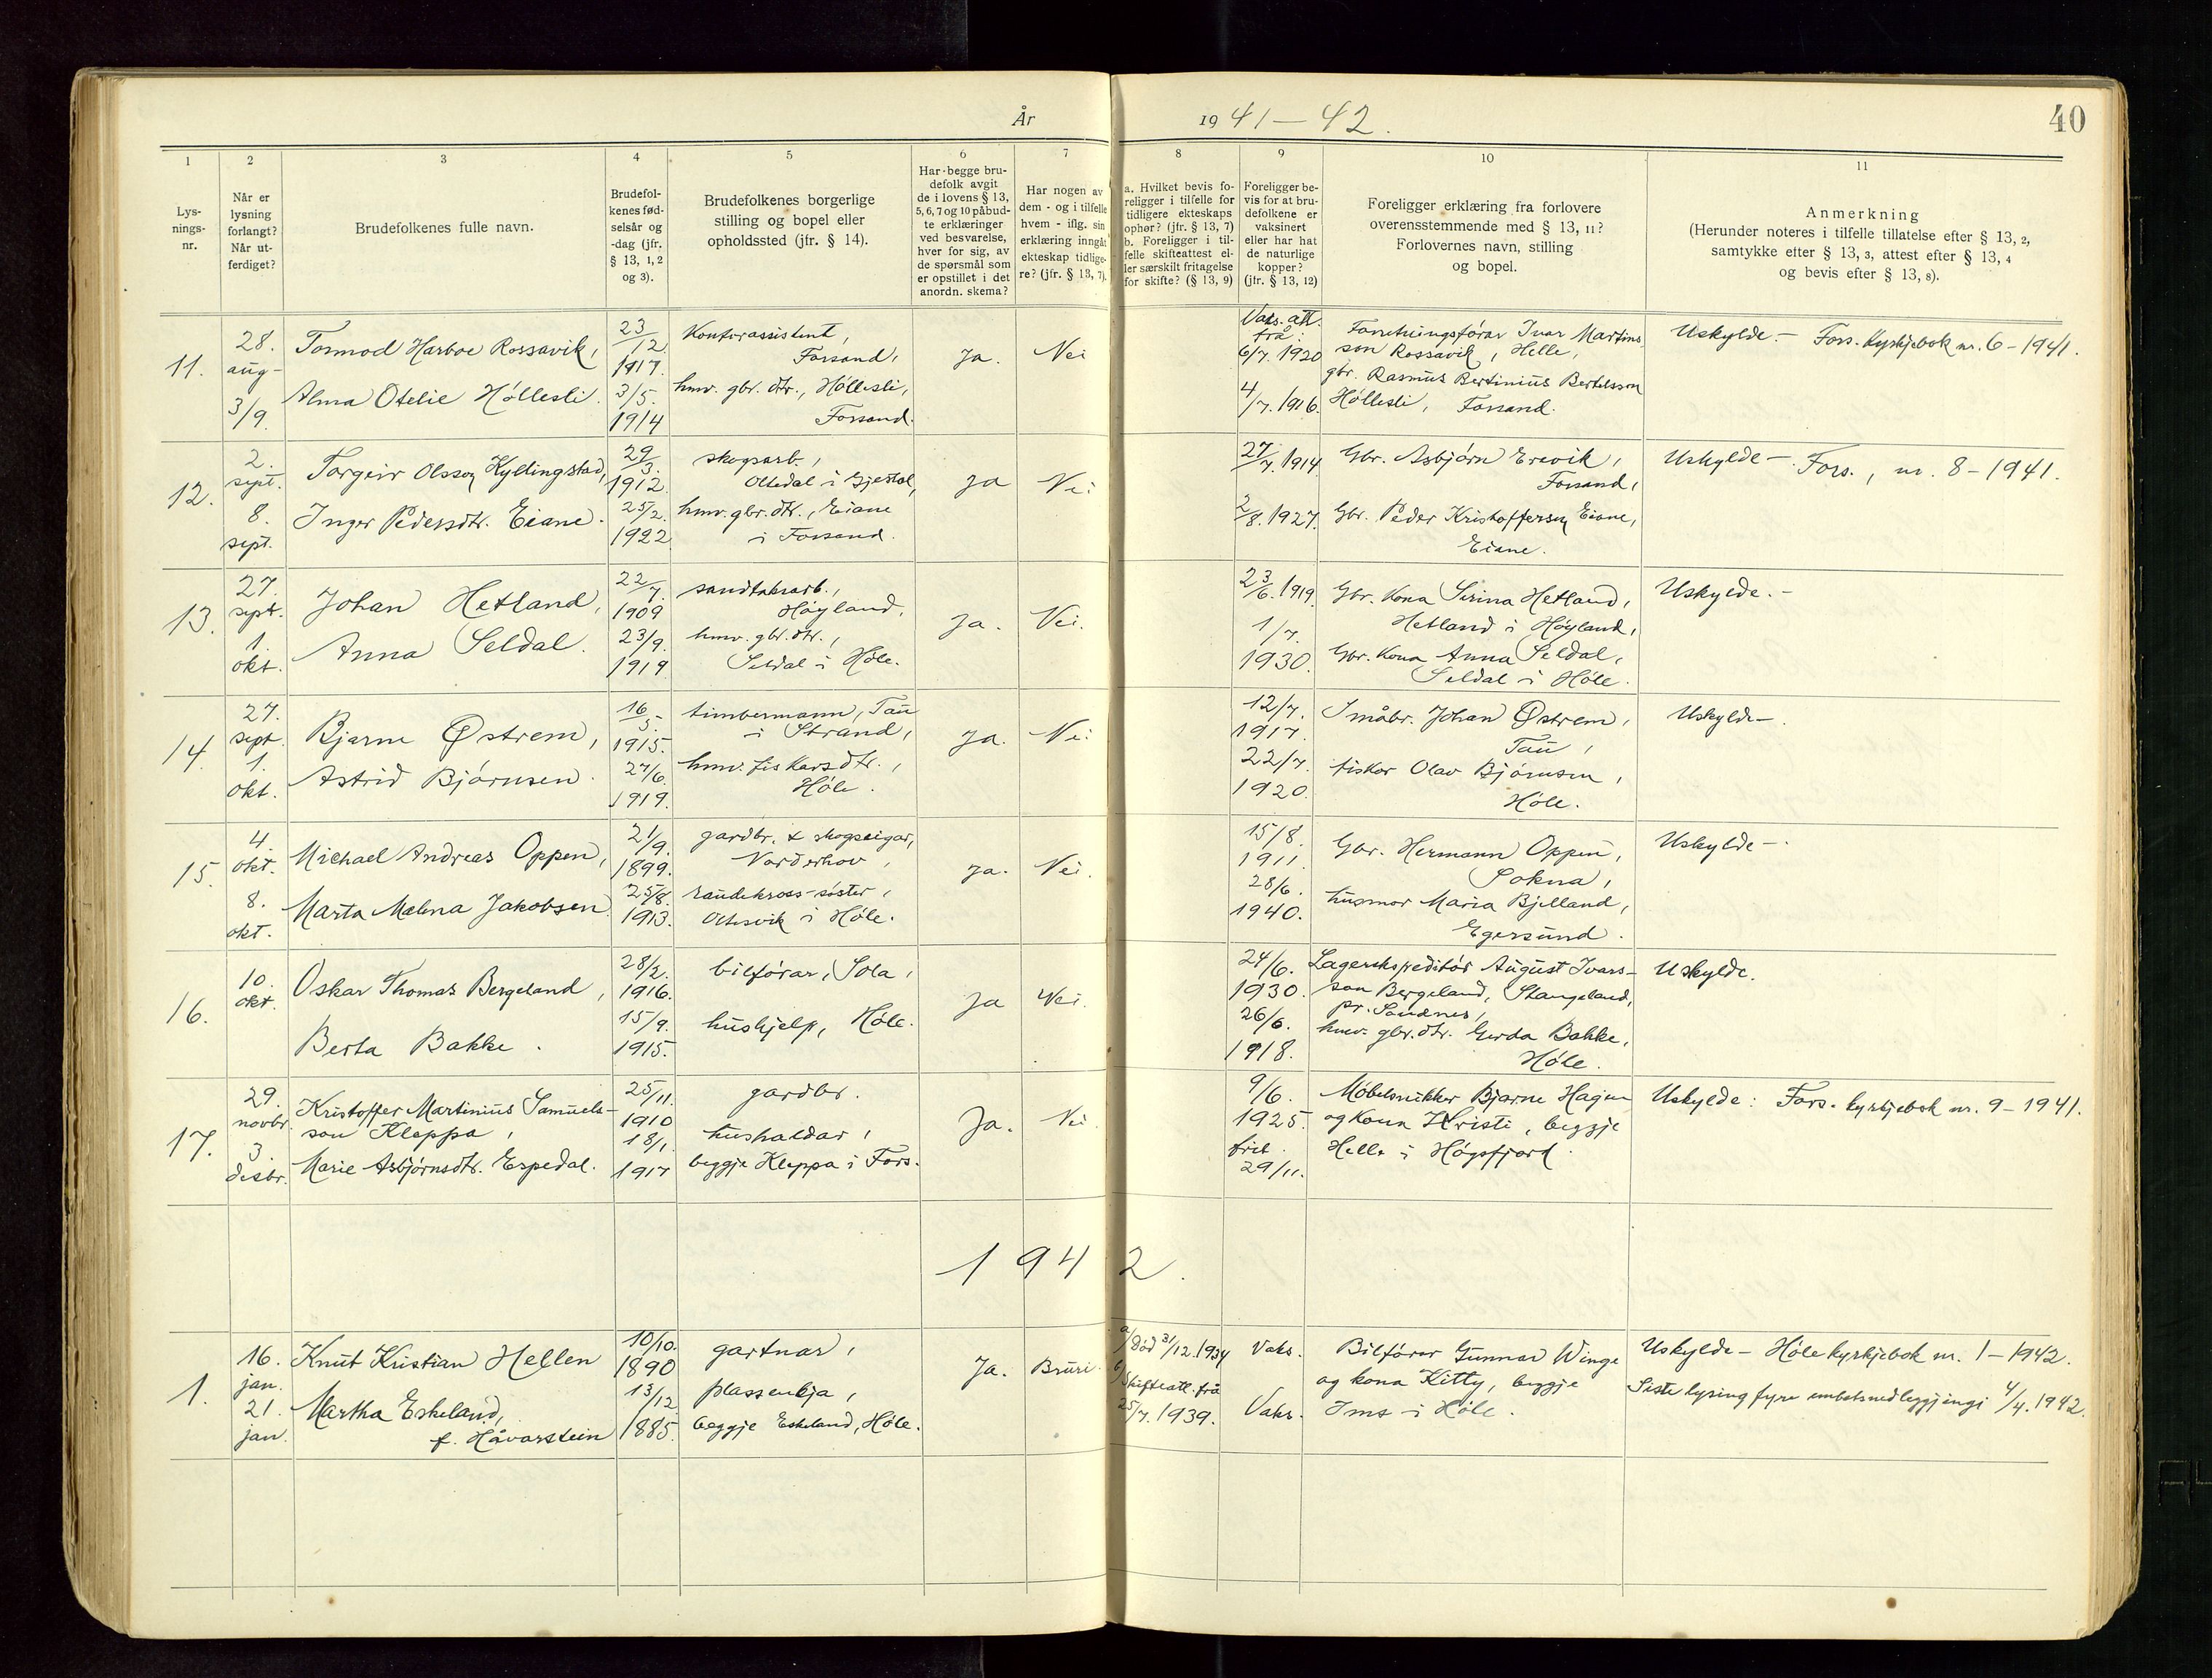 År 1941–42.
40
1
2
3
4
5
6
7
8
9
10
11
Lys-
nings-
nr.
Når er
lysning
forlangt?
Når ut-
ferdiget?
Brudefolkenes fulle navn.
Brudefol-
kenes fød-
selsår og
-dag (jfr.
§ 13, 1, 2
og 3).
Brudefolkenes borgerlige
stilling og bopel eller
opholdssted (jfr. § 14).
Har begge bru-
defolk avgit
de i lovens § 13,
5, 6, 7 og 10 påbud-
te erklæringer
ved besvarelse,
hver for sig, av
de spørsmål som
er opstillet i det
anordn. skema?
Har nogen av
dem - og i tilfelle
hvem - iflg. sin
erklæring inngåt
ekteskap tidlige-
re? (jfr. § 13, 7).
a. Hvilket bevis fo-
religger i tilfelle for
tidligere ekteskaps
ophør? (jfr. § 13, 7)
b. Foreligger i til-
felle skifteattest el-
ler særskilt fritagelse
for skifte? (§ 13, 9)
Foreligger be-
vis for at bru-
defolkene er
vaksinert
eller har hat
de naturlige
kopper?
(jfr. § 13, 12)
Foreligger erklæring fra forlovere
overensstemmende med § 13, 11?
Forlovernes navn, stilling
og bopel.
Anmerkning
(Herunder noteres i tilfelle tillatelse efter § 13, 2,
samtykke efter § 13, 3, attest efter § 13, 4
og bevis efter § 13, 8).
11.
28.
aug-
3/9.
Tormod Harboe Rossavik,
Alma Otelie Höllesli.
23/12
1917.
3/5.
1914
Kontorassistent,
Forsand,
hmv. gbr. dtr., Höllesli,
Forsand.
Ja.
Nei
Vaks. att.
frå
6/7. 1920
4/7. 1916.
Forretningsförar Ivar Martins
son Rossavik, Helle,
gbr. Rasmus Bertinius Bertelsson
Höllesli, Forsand.
Uskylde. – Fors. Kyrkjebok nr. 6 – 1941.
12.
2.
sept.
8.
sept.
Torgeir Olsson Kyllingstad,
Inger Pedersdtr. Eiane.
29/3.
1912
25/2.
1922
skogsarb.,
Oltedal i Gjestal,
hmv. gbr. dtr., Eiane
i Forsand.
Ja
Nei
27/7. 1914
2/8. 1927.
Gbr. Asbjörn Erevik,
Forsand,
Gbr. Peder Kristofferson Eiane,
Eiane.
Uskylde – Fors., nr. 8 – 1941.
13.
27.
sept.
1.
okt.
Johan Hetland,
Anna Seldal.
22/7.
1909
23/9.
1919
sandtakarb.,
Höyland,
hmv. gbr. dtr.,
Seldal i Höle.
Ja.
Nei.
23/6. 1919.
1/7.
1930.
Gbr. Kona Serina Hetland,
Hetland i Höyland,
Gbr. Kona Anna Seldal,
Seldal i Höle.
Uskylde. –
14.
27.
sept.
1.
okt.
Bjarne Østrem,
Astrid Björnsen.
16/5.
1915.
27/6.
1919.
timbermann, Tau
i Strand,
hmv. fiskarsdtr.,
Höle.
Ja.
Nei
12/7.
1917.
22/7.
1920.
Småbr. Johan Østrem,
Tau,
fiskar Olav Björnsen,
Höle.
Uskylde –.
15.
4.
okt.
8.
okt.
Michael Andreas Oppen,
Marta Malena Jakobsen
21/9.
1899.
25/8.
1913.
gardbr. & skogseigar,
Norderhov,
raudekross-söster,
Oltesvik i Höle.
Ja.
Nei.
15/8.
1911.
28/6.
1940.
Gbr. Hermann Oppen,
Sokna,
husmor Maria Bjelland,
Egersund.
Uskylde –.
16.
10.
okt.
Oskar Thomas Bergeland,
Berta Bakke.
28/2.
1916.
15/9.
1915.
bilförar, Sola,
hushjelp, Höle.
Ja
Nei.
24/6.
1930.
26/6.
1918.
Lagerekspeditör August Ivars-
son Bergeland, Stangeland,
pr. Sandnes,
hmv. gbr. dtr. Gerda Bakke,
Höle.
Uskylde.
17.
29.
novbr.
3.
desbr.
Kristoffer Martinius Samuels-
son Kleppa,
Marie Asbjörnsdtr. Espedal.
25/11.
1910
18/1.
1917
gardbr.
hushaldar,
beggje Kleppa i Fors.
Ja.
Nei.
9/6.
1925.
frit.
29/11.
Möbelsnikker Bjarne Hagen
og Kona Kristi, beggje
Helle i Högsfjord.
Uskylde: Fors. kyrkjebok nr. 9 – 1941.
1942.
1.
16.
jan.
21.
jan.
Knut Kristian Hellen
Martha Eskeland,
f. Håvarstein
10/10.
1890
13/12
1885.
gartnar,
plassenkja,
beggje Eskeland, Höle.
Ja.
Bruri.
a/ Död 31/12. 1934
b/ Skifteatt. frå
25/7. 1939.
Vaks.
Vaks.
Bilförar Gunnar Winge
og kona Kitty, beggje
Ims i Höle.
Uskylde – Höle kyrkjebok nr. 1 – 1942.
Siste lysing fyre embetsnedleggjingi 4/4. 1942.